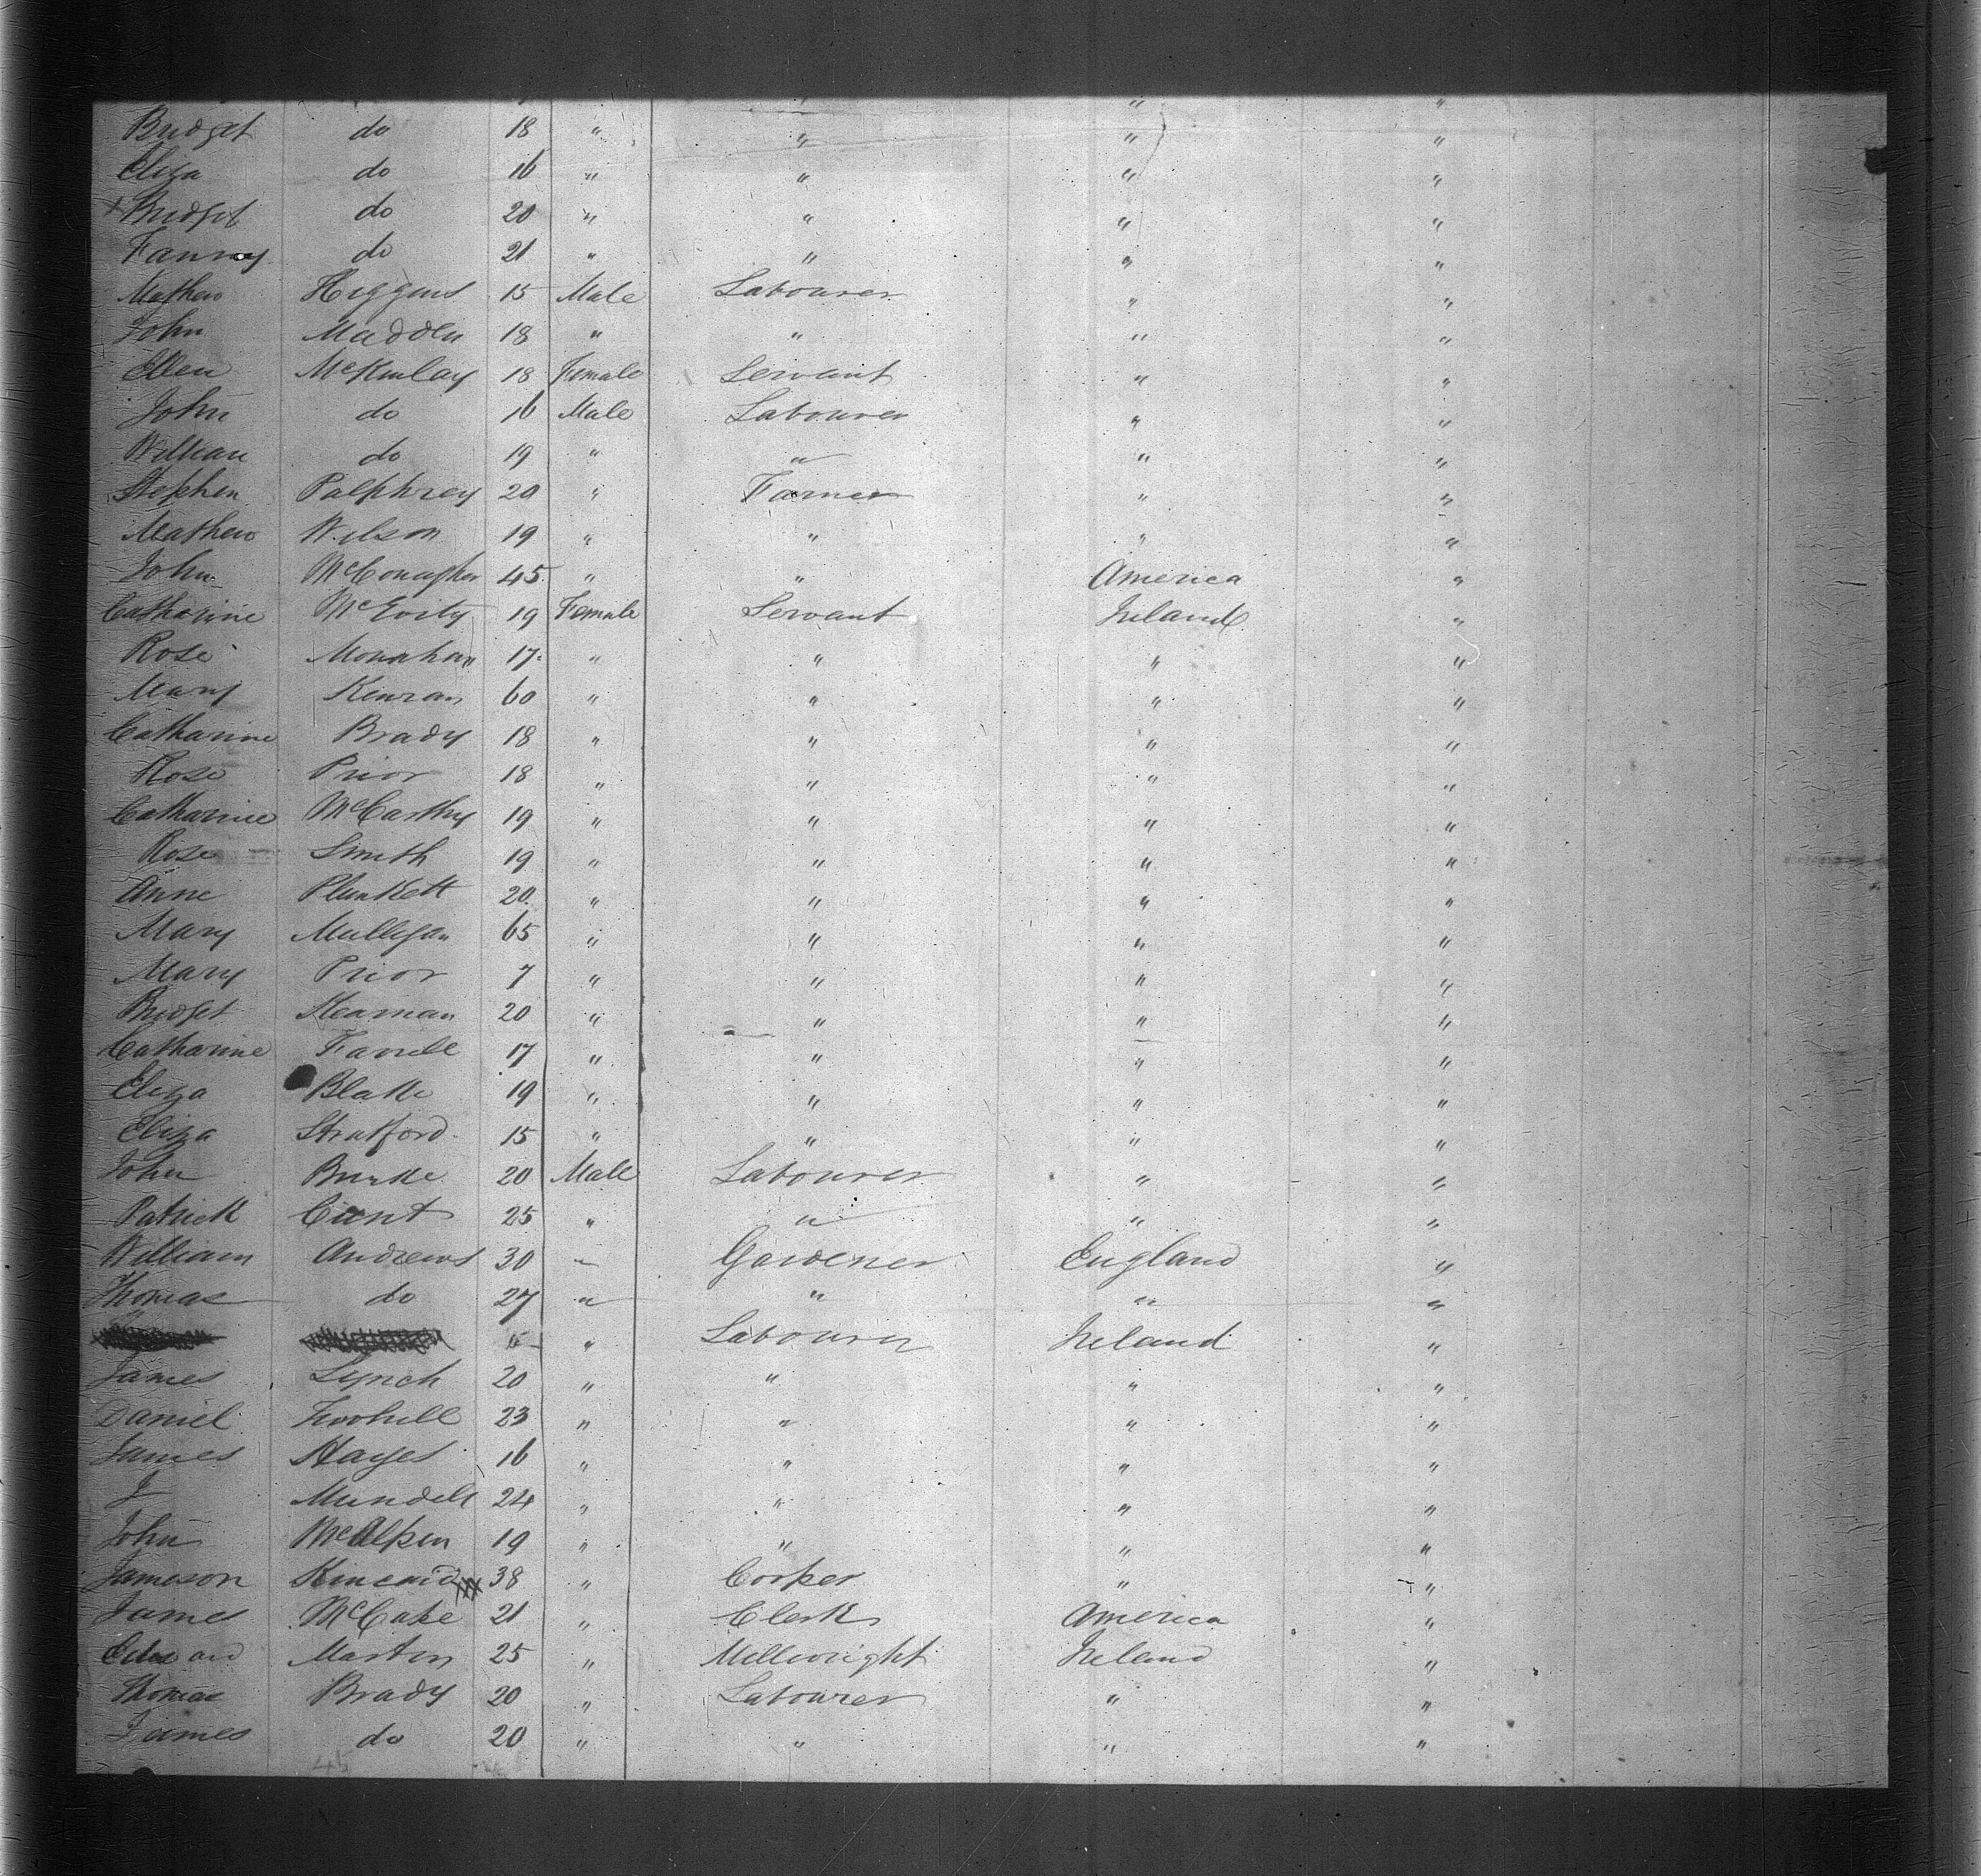 Bridget do 18 " " " "
Eliza do 16 " " " "
+ Bridget do 20 " " " "
Fanny do 21 " " " "
Mathew Higgins 15 Male Labourer " "
John Madden 18 " " " "
Ellen McKinlay 18 Female Servant " "
John do 16 Male Labourer " "
William do 19 " " " "
Stephen Palphrey 20 " Farmer " "
Mathew Wilson 19 " " " "
John McConagher 45 " " America "
Catharine McEvily 19 Female Servant Ireland "
Rose Monahan 17 " " " "
Mary Kenran 60 " " " "
Catharine Brady 18 " " " "
Rose Prior 18 " " " "
Catharine McCarthy 19 " " " "
Rose Smith 19 " " " "
Anne Plunkett 20 " " " "
Mary Mulligan 65 " " " "
Mary Prior 7 " " " "
Bridget 20 " " " "
Catharine Farrell 17 " " " "
Eliza Blake 19 " " " "
Eliza Stratford 15 " " " "
John Burke 20 Male Labourer " "
Patrick 25 " " " "
William Andrews 30 " Gardener England "
Thomas do 27 " " " "
" Labourer Ireland "
James Lynch 20 " " " "
Daniel 23 " " " "
James Hayes 16 " " " "
J Mundell 24 " " " "
John McAlpin 19 " " " "
Jameson Kincaid xxx 38 " Cooper " "
James McCabe 21 " Clerk America "
Edward Martin 25 " Millwright Ireland "
Thomas Brady 20 " Labourer " "
James do 20 " " " "
45